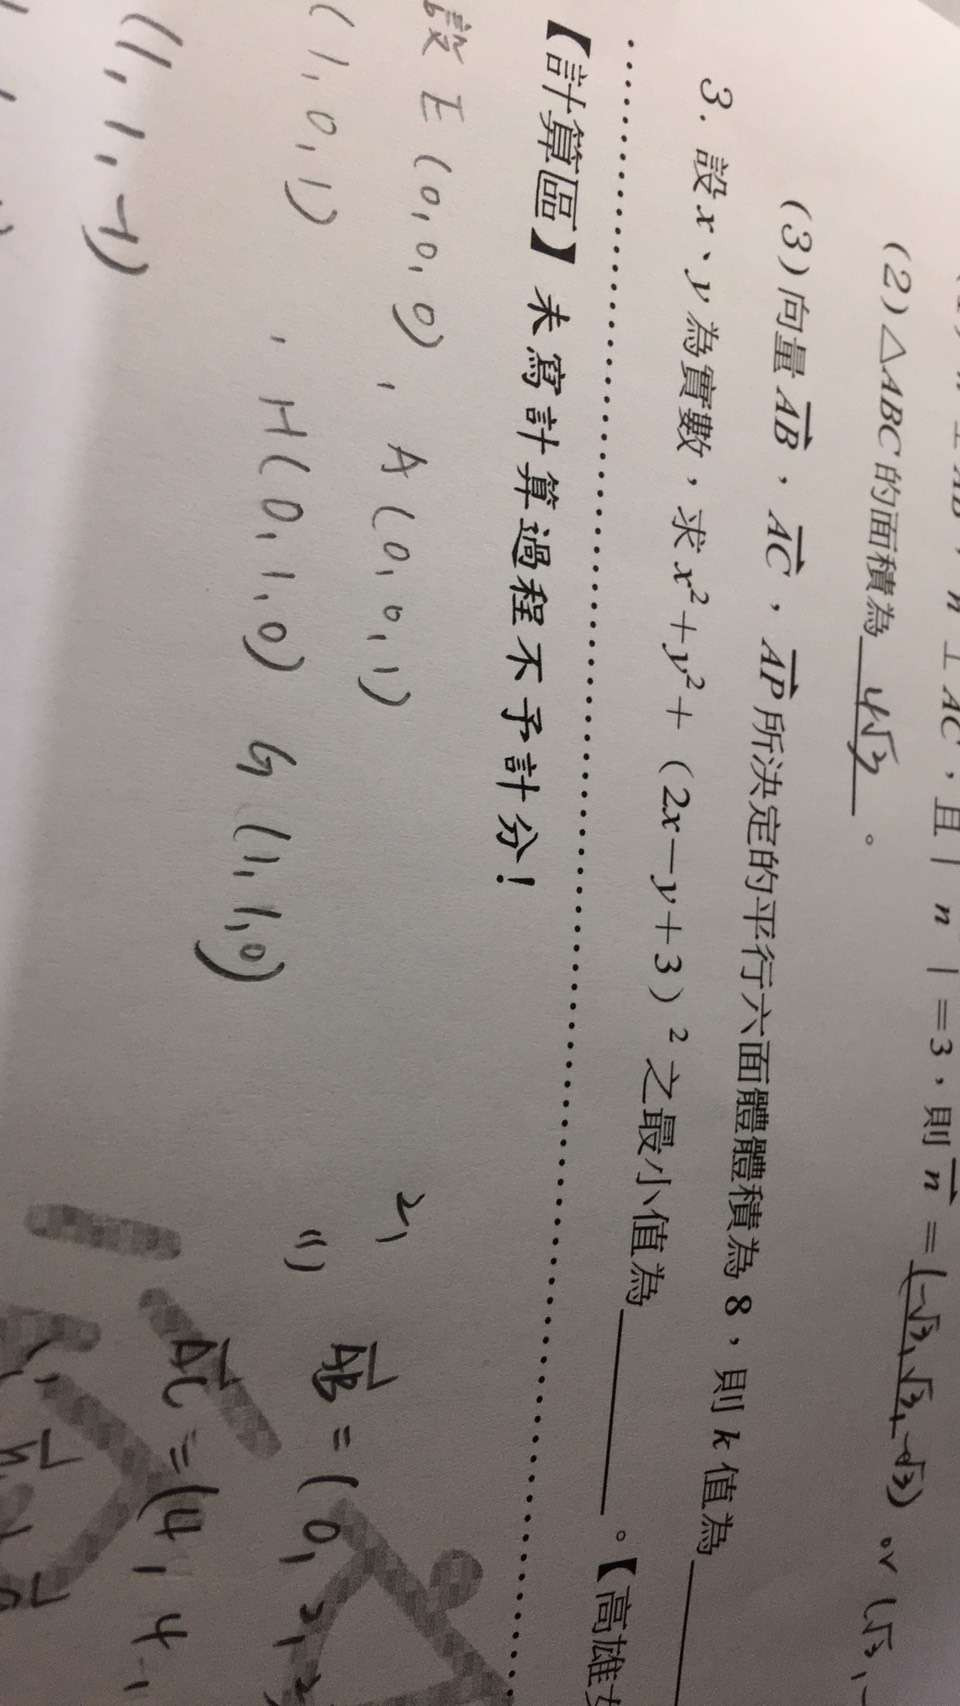 ⊥AB，n⊥AC，且｜n｜=3，則n=(-√3,√3,-√3) or (√3,-
(2)△ABC的面積為 4√3 。
(3)向量AB，AC，AP所決定的平行六面體體積為 8，則 k 值為
3. 設 x、y 為實數，求 x²+y²+（2x－y＋3）²之最小值為 。【高雄
【計算區】未寫計算過程不予計分！
設 E(0,0,0), A(0,0,1)
(1,0,1) , H(0,1,0) G(1,1,0)
(1,1,-1)
2)
(1) AB=(0,2,
AC=(4,4,